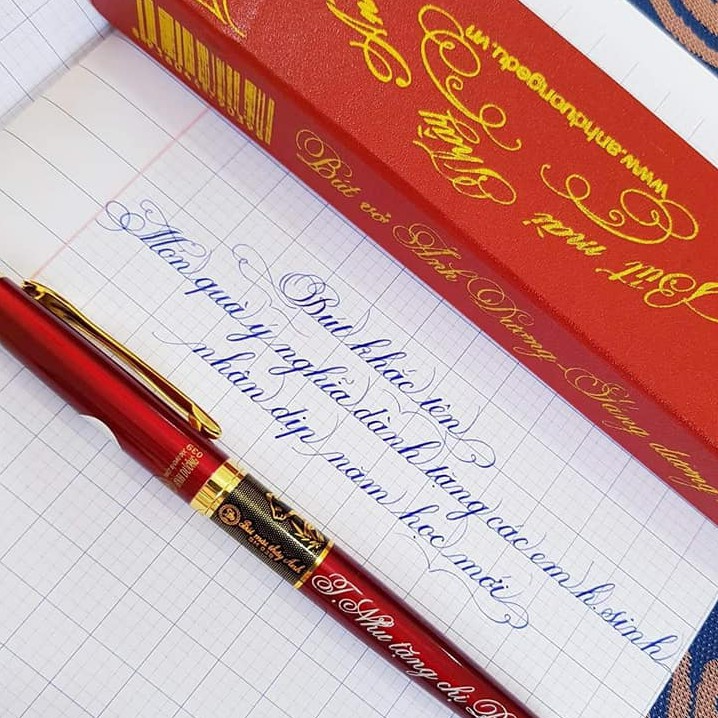 Bút khắc tên
Món quà ý nghĩa dành tặng các em h.sinh
nhân dịp năm học mới
Bút vở Ánh Dương - Hàng dương
www.anhduongedu.vn
Bút mài
thầy
ÁNH DƯƠNG
Bút mài thầy Ánh
T.Như tặng chị